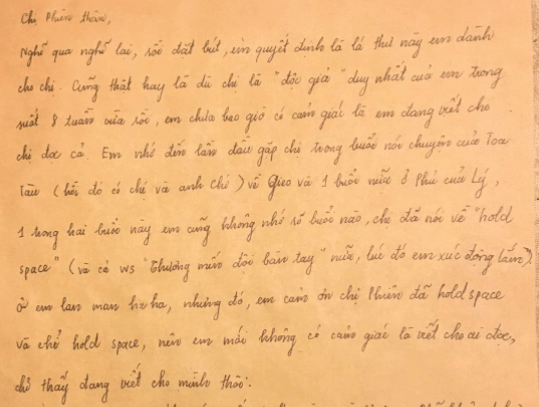 Chị Phiên thân,
Nghĩ qua nghĩ lại, rồi đặt bút, em quyết định là lá thư này em dành
cho chị. Cũng thật hay là dù chị là "độc giả" duy nhất của em trong
suốt 8 tuần vừa rồi, em chưa bao giờ có cảm giác là em đang viết cho
chị đọc cả. Em nhớ đến lần đầu gặp chị trong buổi nói chuyện của Toa
Tàu (hồi đó có chị và anh Chí) về Gieo và 1 buổi nữa ở Phú của Lý,
1 trong hai buổi này em cũng không nhớ rõ buổi nào, chị đã nói về "hold
space" (và cả ws "Thương mến đôi bàn tay" nữa, lúc đó em xúc động lắm).
Ờ em lan man hơ ha, nhưng đó, em cảm ơn chị Phiên đã hold space
và chỉ hold space, nên em mới không có cảm giác là viết cho ai đọc,
chỉ thấy đang viết cho mình thôi.